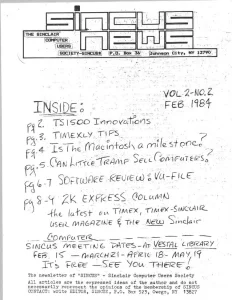 SINCUS
NEWS
THE SINCLAIR
COMPUTER
USERS
SOCIETY-SINCUS
P.O. Box 36
Johnson City, NY 13790
VOL 2-NO.2
FEB 1984
INSIDE:
Pg 2. TS1500 Innovations
Pg 3. TIMEXLY TIPS
Pg 4 Is The Macintosh a milestone?
Pg-5 CAN LITTLE TRAMP SELL COMPUTERS?
Pg 6-7 SOFTWARE REVIEW: VU-FILE
Pg 8-9 2K EXPRESS COLUMN
the latest on TIMEX, TIMEX-SINCLAIR
USER MAGAZINE & THE NEW Sinclair
COMPUTER
SINCUS MEETING DATES-AT VESTAL LIBRARY
FEB. 15 - MARCH 21 - APRIL 18 - MAY 19
ITS FREE - SEE YOU THERE!
The newsletter of "SINCUS" - Sinclair Computer Users Society
All articles are the expressed ideas of the author and do not
necessarily represent the opinions of the membership of SINCUS
CONTACT: Write EDITOR, SINCUS, P.O. Box 523, Owego, NY 13827